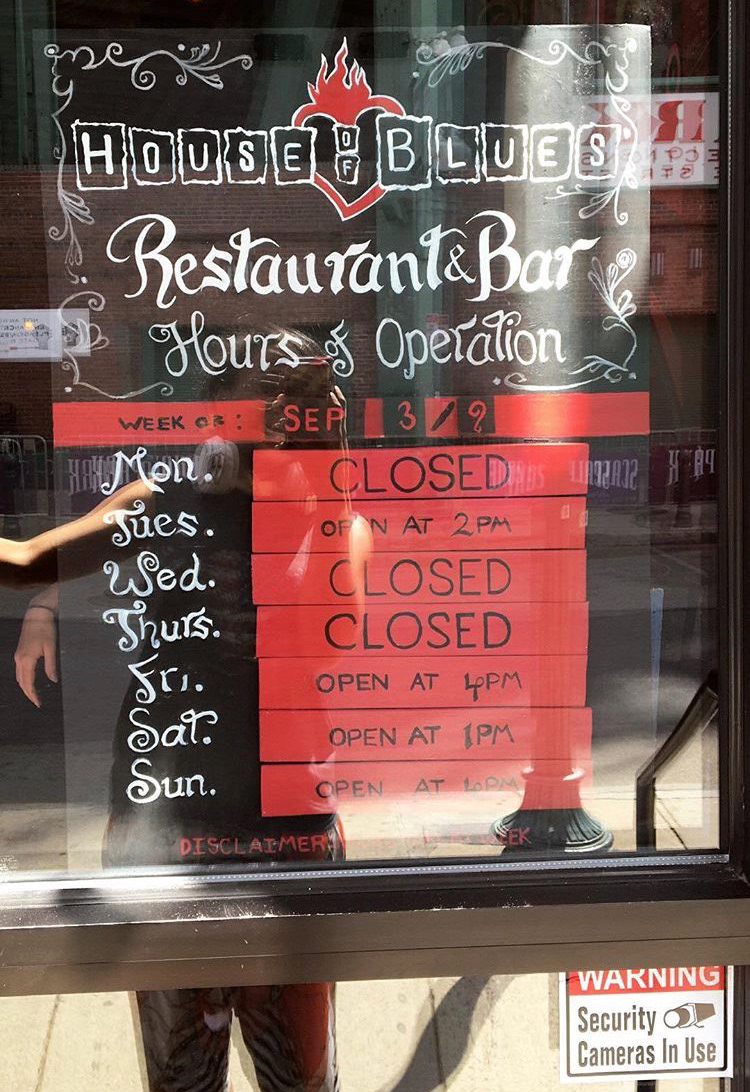 HOUSE OF BLUES
Restaurant & Bar
Hours of Operation
WEEK OF: SEP 3/9
Mon. CLOSED
Tues. OPEN AT 2PM
Wed. CLOSED
Thurs. CLOSED
Fri. OPEN AT 4PM
Sat. OPEN AT 1PM
Sun. OPEN AT 4PM
DISCLAIMER
WARNING
Security
Cameras In Use